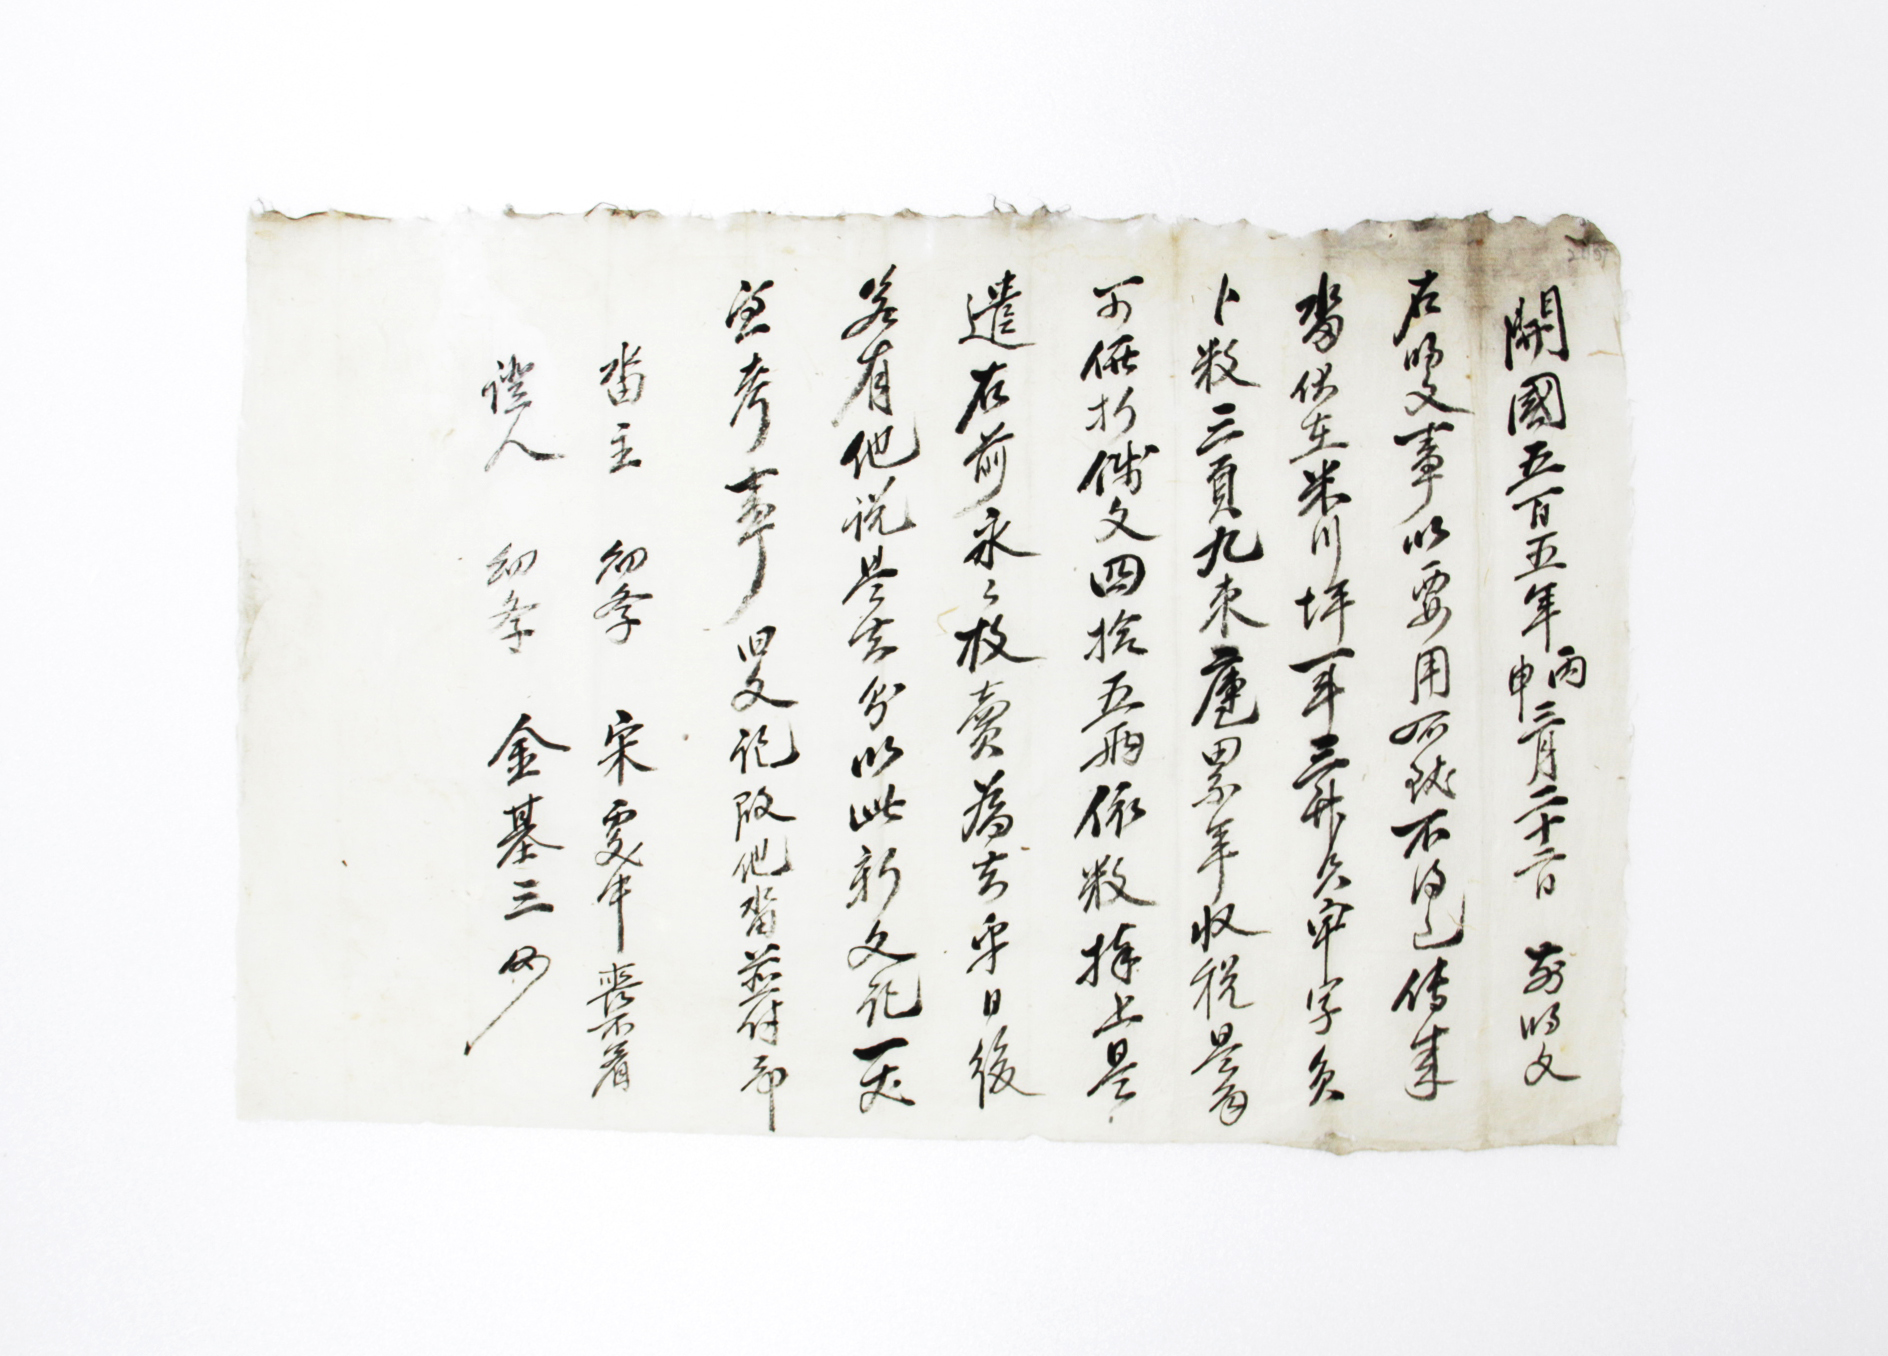 開國五百五年丙申三月二十二日 前明文
右明文事以要用所致不得已傳來
畓伏在米川坪一斗三升落 字負
卜數三負九束 累年收稅是多
可 折價文四拾五兩依數捧上是
遣右前永永放賣爲去乎日後
若有他說是去等以此新文記一丈
憑考事 旧文記段他畓並付印
畓主 幼學 宋雯中 喪不着
證人 幼學 金基三